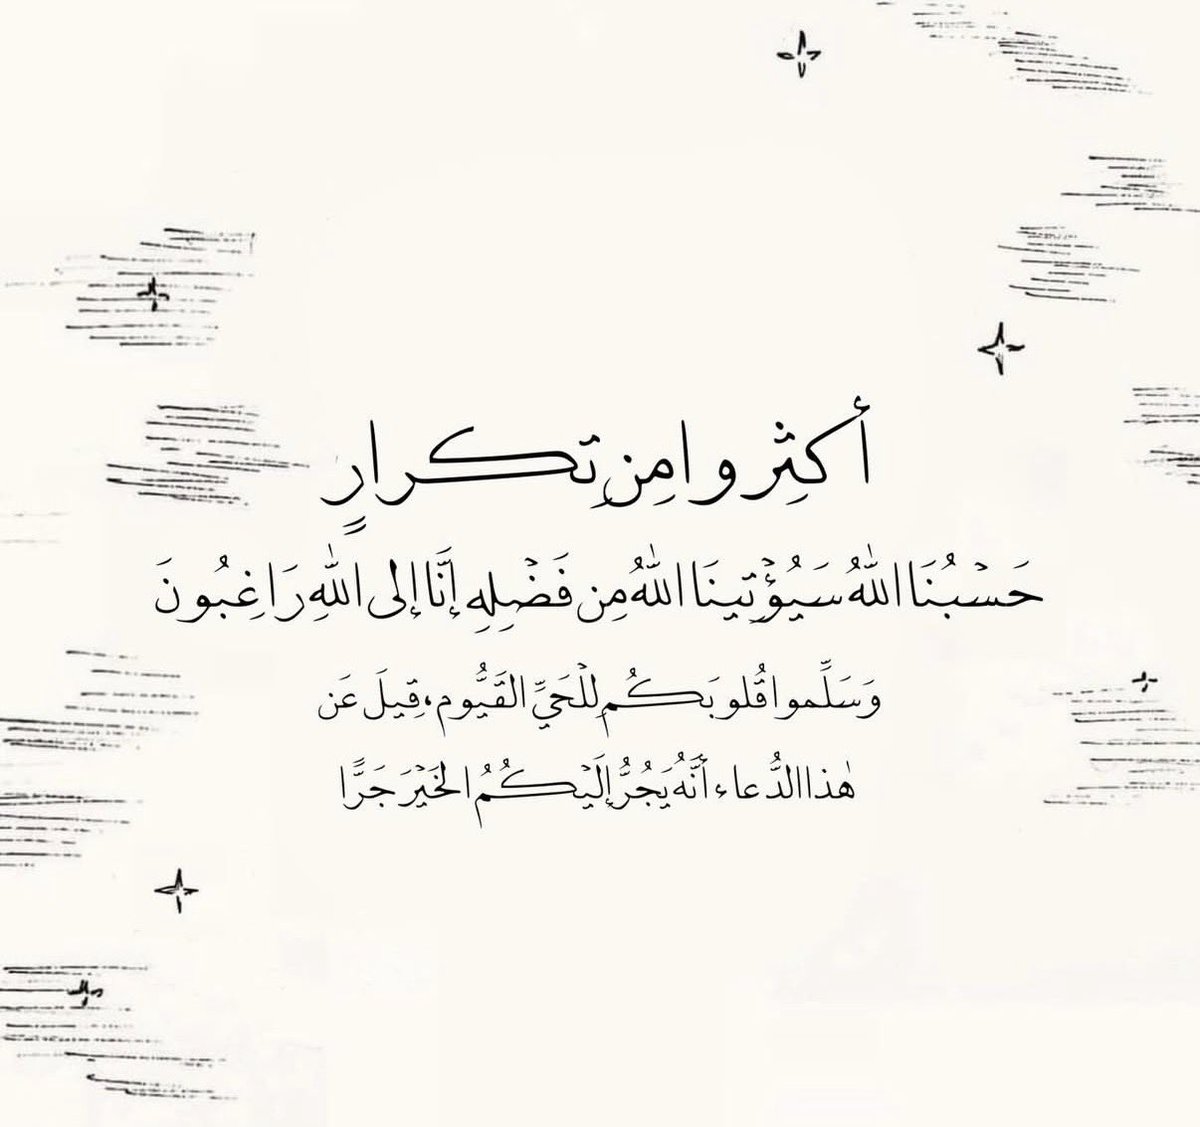 أَكثِروا مِن تِكرارٍ
حَسۡبُنَا اللّٰهُ سَيُؤۡتِينَا اللّٰهُ مِن فَضۡلِهِ إنَّا إلى اللّٰهِ رَاغِبُونَ
وَسَلِّموا قُلوبَكُم لِلۡحَيِّ القَيُّوم، قِيلَ عَن
هٰذا الدُّعاء أنَّهُ يَجُرُّ إلَيۡكُمُ الخَيۡرَ جَرًّا